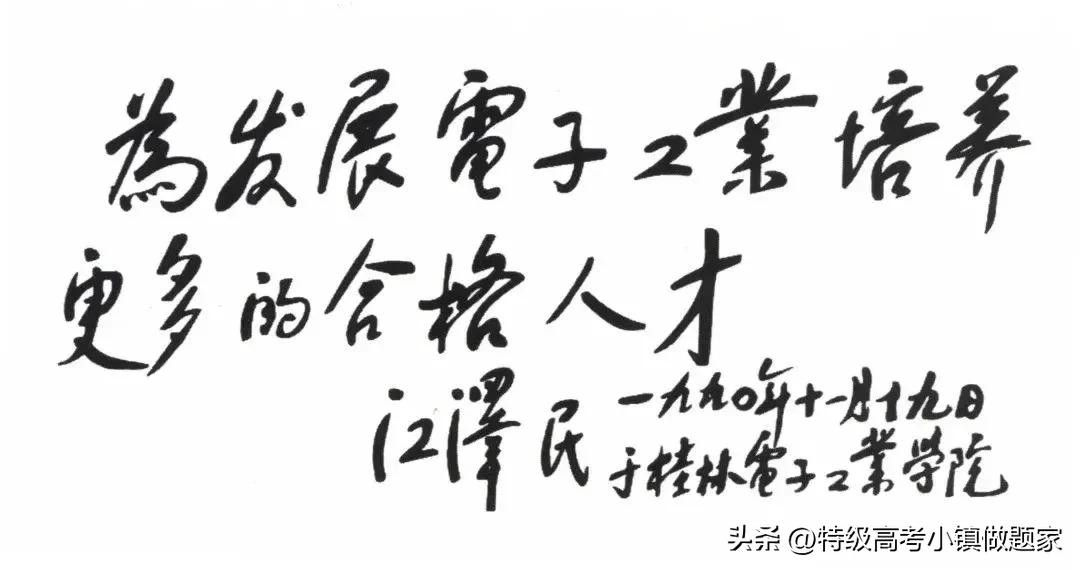 為发展電子工業培养
更多的合格人才
江澤民
一九九〇年十一月十九日
于桂林電子工業學院
头条 @特级高考小镇做题家